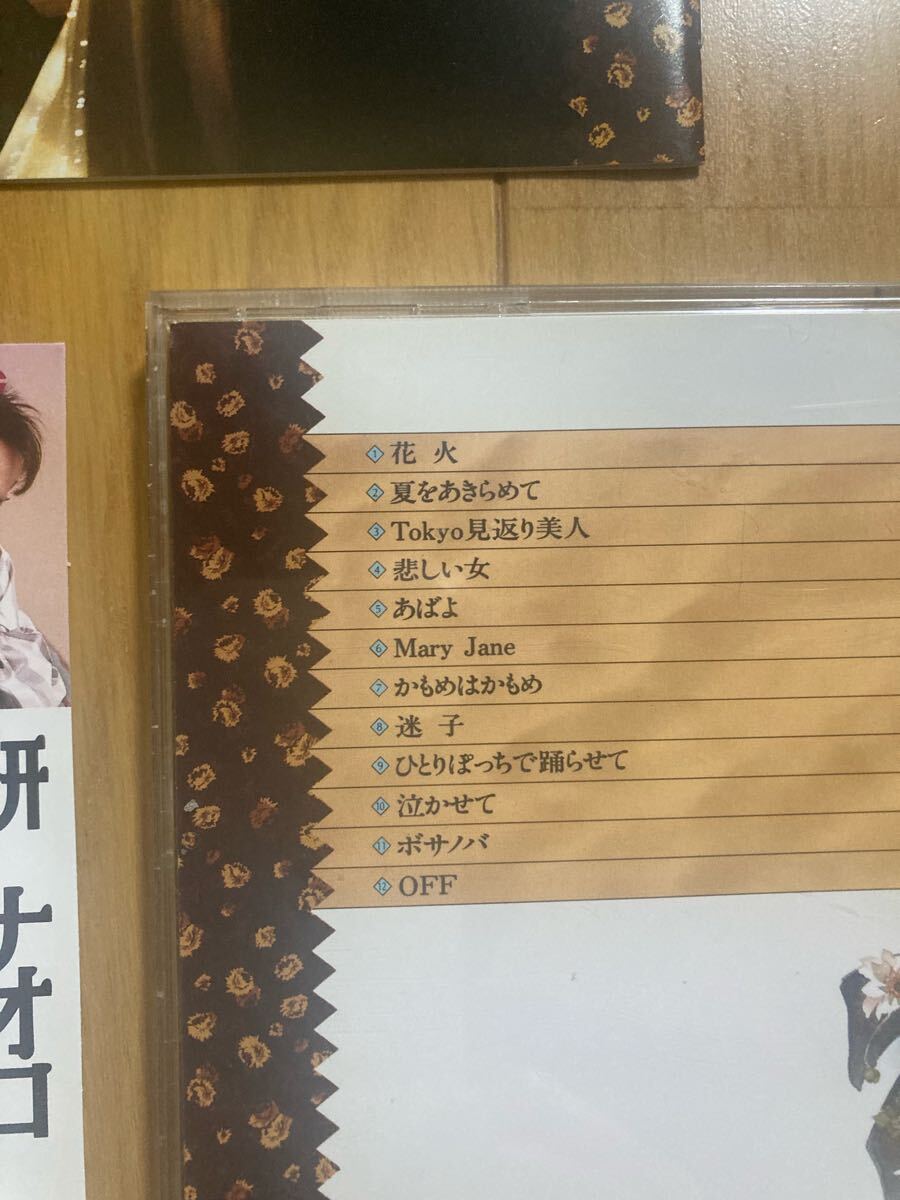 1 花火
2 夏をあきらめて
3 Tokyo見返り美人
4 悲しい女
5 あばよ
6 Mary Jane
7 かもめはかもめ
8 迷子
9 ひとりぽっちで踊らせて
10 泣かせて
11 ボサノバ
12 OFF
研ナオコ